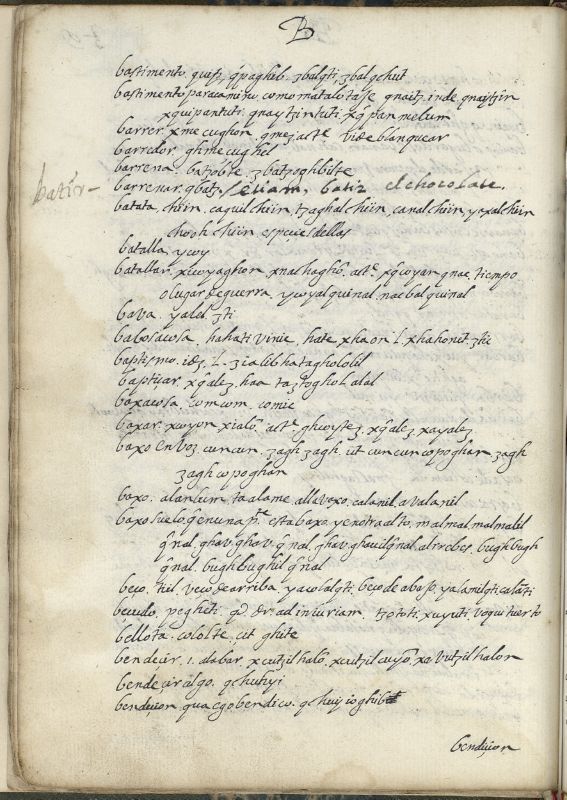 B
bastimento. quip, q'paghib. ʒbalqti, ʒbal qchut
bastimento para camino, como matalotaje qnaitʒ. inde. qnaytʒin
xquipantuti. qnaytʒintuti. xq' pan melum
barrer. xmecughon. qmeʒ actē vide blanquear
barredor. ghmecughel
barrena. batʒobte. ʒbatʒoghibte
barrenar. qbatʒ. / etiam. batir el chocolate.
batir-
batata, chiin. caquilchiin, tʒaghalchiin, canalchiin, yaxalchiin
chooh chiin especies dellas
batalla. ycoy
batallar. xcoyaghon. xnachaghō. actē. xq'coyan qnae, tiempo
o lugar de guerra. ycoyalquinal. naebalquinal
bava. yalel. ʒti
babosa cosa. hahativinic, hate xhaon. l. xhahonet. ʒtic
baptismo. idʒ. l. ʒialibhataghololil
baptiʒar. xq'aleʒ. haa taʒtoghol alal
baxa cosa. comcom. comic
baxar. xcoyon. xialō. actē. ghcoyteʒ. xq'aleʒ. xayaleʒ
baxo en voʒ. cuncun. ʒagh ʒagh. ut cuncun copoghan ʒagh
ʒagh copoghan
baxo. alanlum. ta alame. alla vaxo. calanil. avalanil
baxo suelo, q̄ en una pte esta baxo, y en otra alto. malmal. malmalil
q'nal. ghav. ghov q'nal. ghav. ghauilq'nal. altrebes. bughbugh
q'nal. bughbughil q'nal
beço. tiil. beço de arriba. yacolalqti. beço de abaxo. yalanilqti, calāti
beçudo. pegheti. qd dr. ad iniuriam. tʒototi. xuyuti. voqui tuerto
bellota. cololte. sit ghite
bendeçir. i. dabar. xcutʒil halō. xcutʒil cuyō. xavutʒil halon
bendeçir algo. qchuhyi
bendiçion qua ego bendico. qchuyioghib
bendiçion